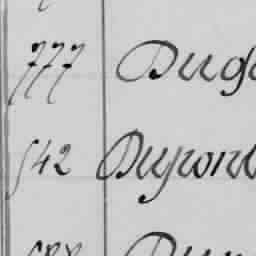 777 Dug
542 Dupont